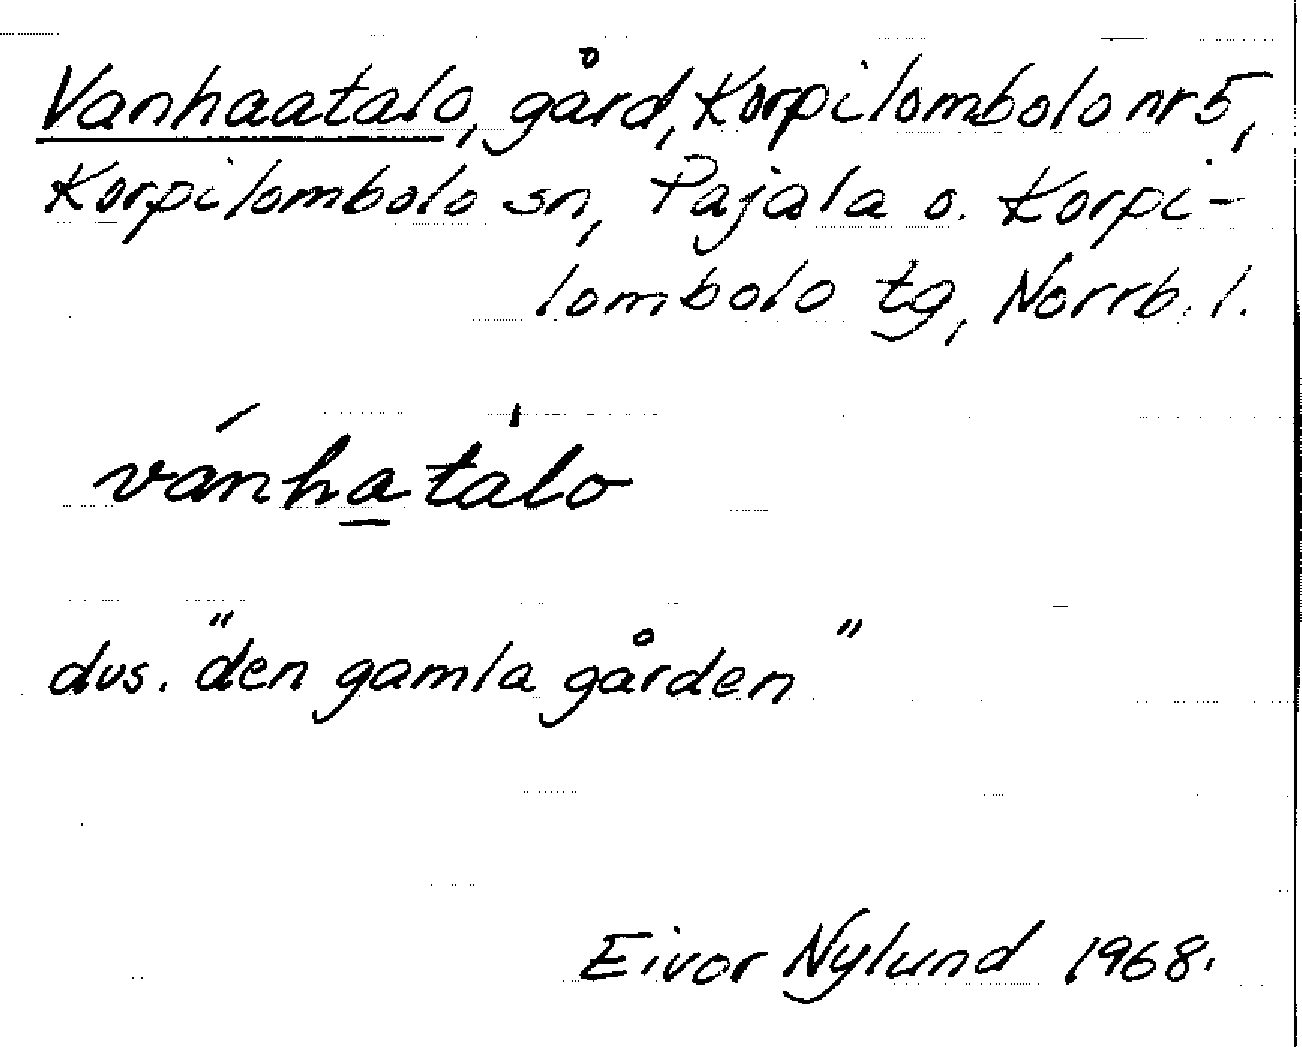 Vanhaatalo, gård, Korpilombolo nr 5,
Korpilombolo sn, Pajala o. Korpi-
lombolo tg, Norrb. l.
vánha̱ ta̍lo
dvs. "den gamla gården"
Eivor Nylund 1968.